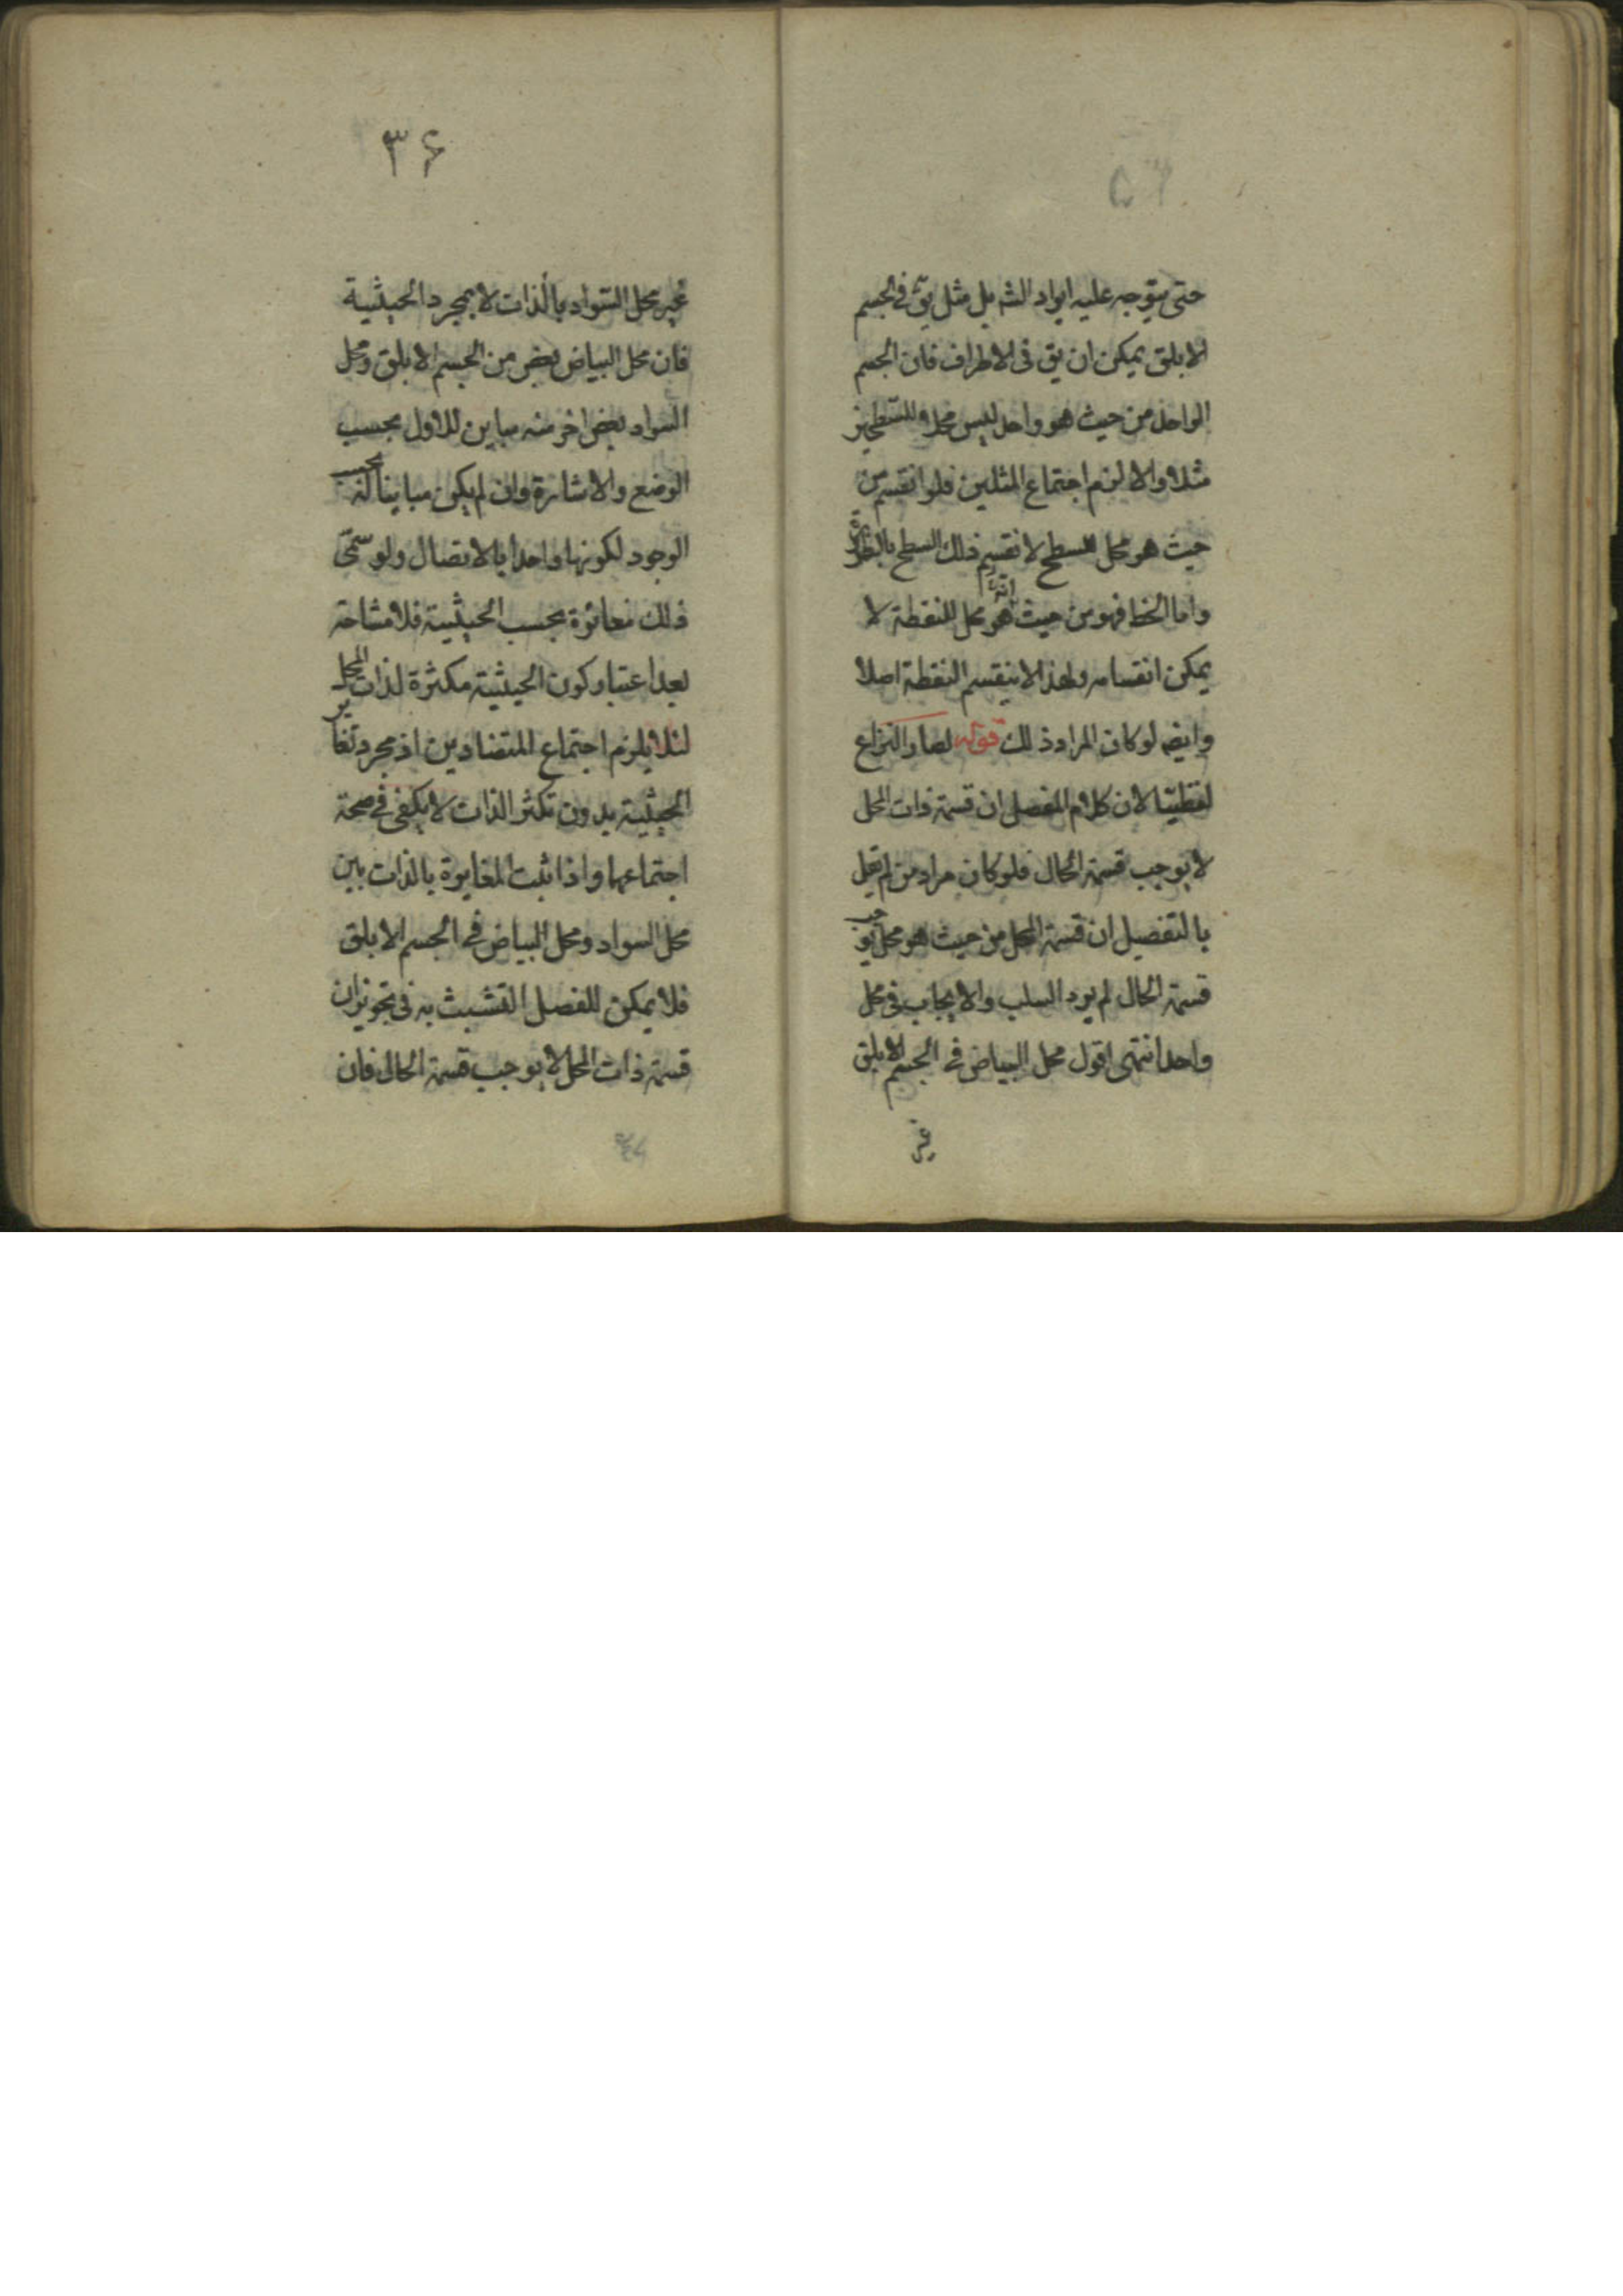 حتى يتوجه عليه ايراد الشه بل مثل يق فى الجسم
الابلق يمكن ان يق فى الاطراف فان الجسم
الواحد من حيث هو واحد ليس محلا للسطحين
مثلا والا لزم اجتماع المثلين فلو انقسم من
حيث هو محل للسطح لانقسم ذلك السطح بالضرورة
واما الخط فهو من حيث انه هو محل للنقطة لا
يمكن انقسامه ولهذا لا ينقسم النقطة اصلا
وايضه لو كان المراد ذلك قوله لصار النزاع
لفظيّا لان كلام المفصل ان قسمة ذات المحل
لا يوجب قسمة الحال فلو كان مراد من لم يقل
بالتفصيل ان قسمة المحل من حيث هو محل يوجب
قسمة الحال لم يرد السلب والايجاب فى محل
واحد انتهى اقول محل البياض فى الجسم الابلق
غير
۳۶
غير محل السّواد بالذات لا بمجرد الحيثية
فان محل البياض بعض من الجسم الابلق ومحل
السواد بعض اخر منه مباين للاول بحسب
الوضع والاشارة وان لم يكن مباينا له بحسب
الوجود لكونها واحدا بالاتصال ولو سمّى
ذلك مغائرة بحسب الحيثية فلا مشاحة
بعد اعتبار كون الحيثية مكثرة لذات المحل
لئلا يلزم اجتماع المتضادين اذ مجرد تغاير
الحيثية بدون تكثر الذات لا يكفى فى صحة
اجتماعهما واذا ثبت المغايرة بالذات بين
محل السواد ومحل البياض فى الجسم الابلق
فلا يمكن للمفصل التشبث به فى تجويز ان
قسمة ذات المحل لا يوجب قسمة الحال فان